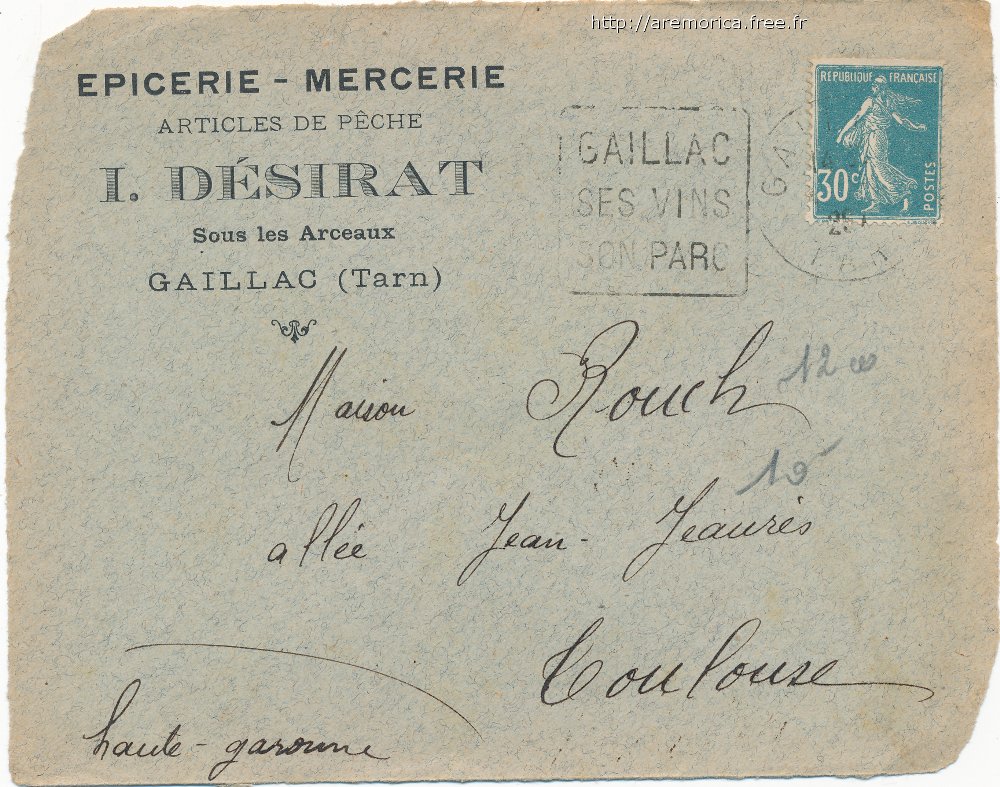 http://aremorica.free.fr
EPICERIE - MERCERIE
ARTICLES DE PÊCHE
I. DÉSIRAT
Sous les Arceaux
GAILLAC (Tarn)
GAILLAC
SES VINS
SON PARC
RÉPUBLIQUE FRANÇAISE
30c
POSTES
Maison Rouch
12
allée Jean-Jeaurès
Toulouse
haute-garonne